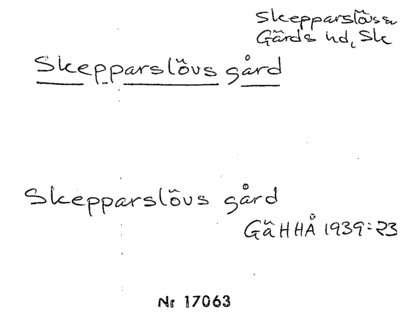 Skepparslövs sn
Gärds hd, Sk
Skepparslövs gård
Skepparslövs gård
GäHHÅ 1939:23
Nr 17063